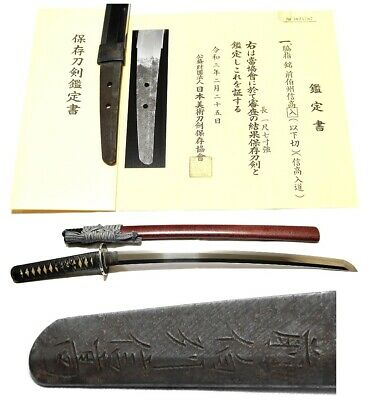 保存刀剣鑑定書
鑑定書
一、脇指 銘 前伯州信高入(以下切)(信高入道)
長 一尺七寸強
右は當協會に於て審査の結果保存刀剣と
鑑定しこれを証する
令和三年二月二十五日
公益財団法人 日本美術刀剣保存協會
前伯州信高